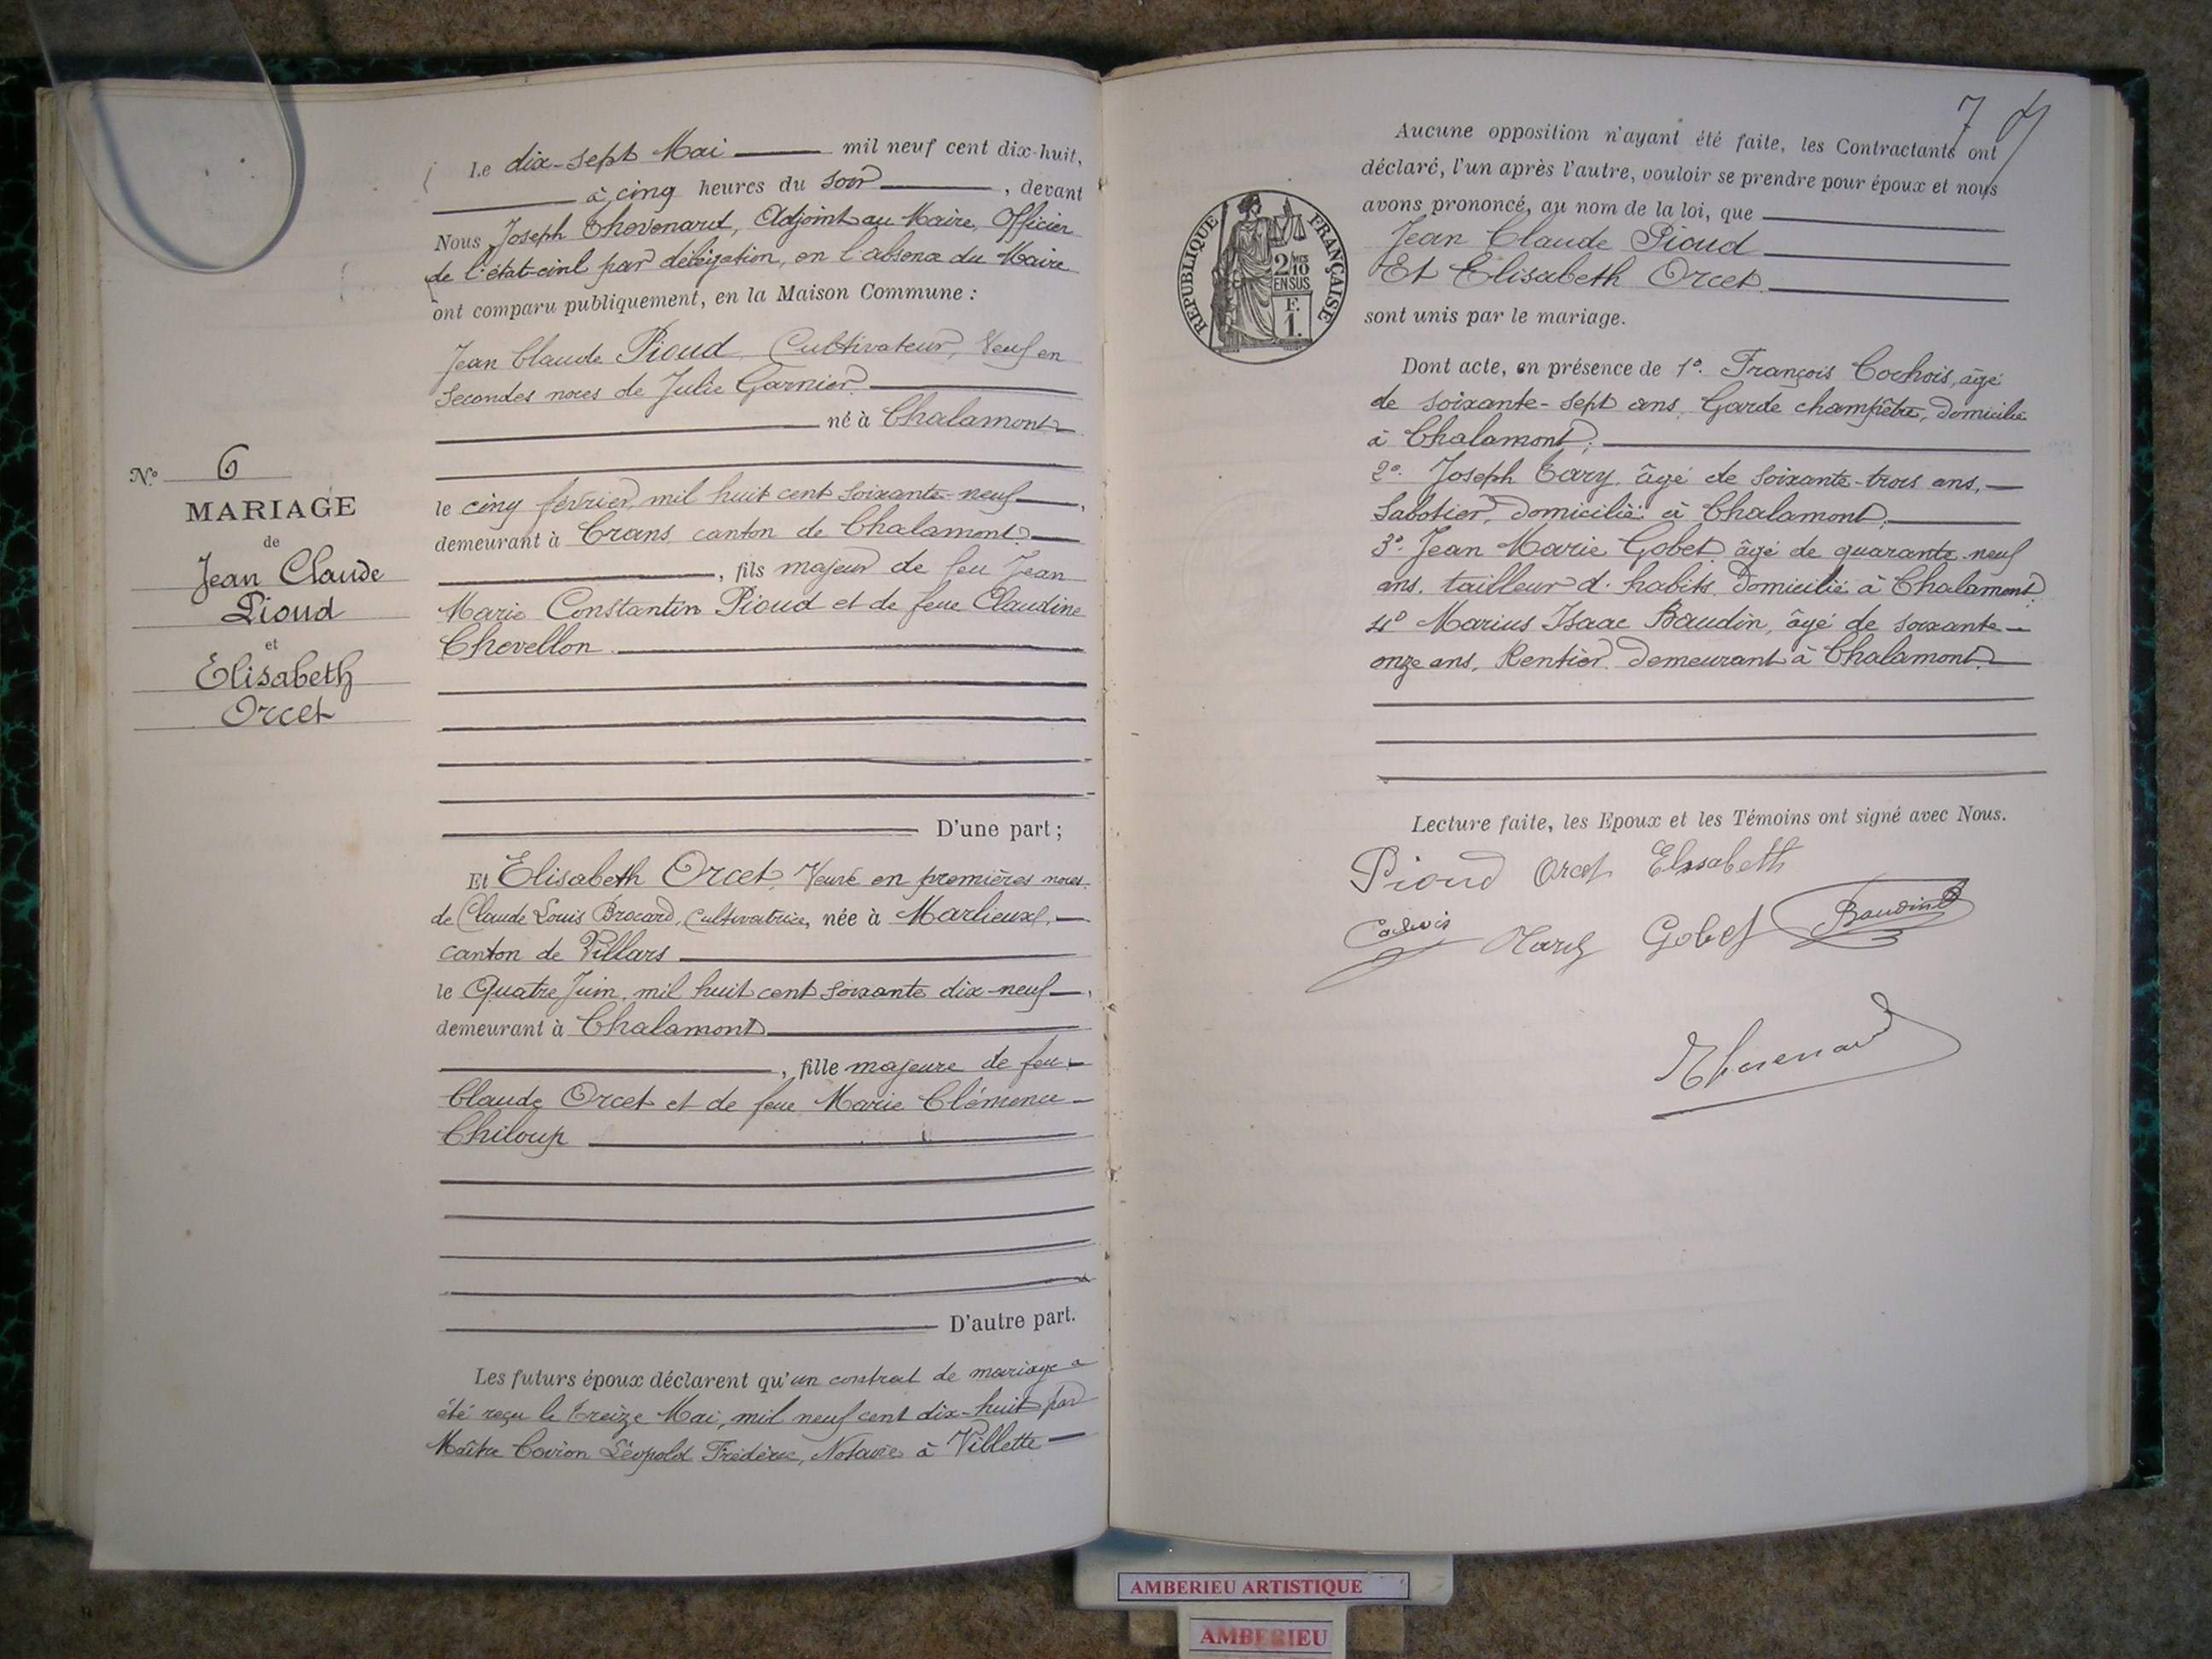 N° 6
MARIAGE
de
Jean Claude
Pioud
et
Elisabeth
Orcet
Le dix-sept Mai mil neuf cent dix-huit,
à cinq heures du soir, devant
Nous Joseph Thévenard, Adjoint au Maire, Officier
de l'état-civil par délégation, en l'absence du Maire
ont comparu publiquement, en la Maison Commune :
Jean Claude Pioud Cultivateur, Veuf en
Secondes noces de Julie Garnier
né à Chalamont
le cinq février mil huit cent soixante-neuf,
demeurant à Crans canton de Chalamont
, fils majeur de feu Jean
Marie Constantin Pioud et de feue Claudine
Chevellon
D'une part ;
Et Elisabeth Orcet, Veuve en premières noces
de Claude Louis Brocard, Cultivatrice, née à Marlieux,
canton de Villars
le Quatre Juin mil huit cent soixante dix-neuf,
demeurant à Chalamont
, fille majeure de feu
Claude Orcet et de feue Marie Clémence
Chiloup
D'autre part.
Les futurs époux déclarent qu'un contrat de mariage a
été reçu le treize Mai, mil neuf cent dix-huit par
Maître Léopold Frédéric, Notaire à Villette
7
Aucune opposition n'ayant été faite, les Contractants ont
déclaré, l'un après l'autre, vouloir se prendre pour époux et nous
avons prononcé, au nom de la loi, que
Jean Claude Pioud
Et Elisabeth Orcet
sont unis par le mariage.
RÉPUBLIQUE FRANÇAISE
2/10
EN SUS
F.
1.
Dont acte, en présence de 1°. François Cochois, âgé
de soixante-sept ans, Garde champêtre, domicilié
à Chalamont;
2°. Joseph Tary, âgé de soixante-trois ans,
Sabotier, domicilié à Chalamont
3°. Jean Marie Gobet âgé de quarante neuf
ans, tailleur d'habits, domicilié à Chalamont
4° Marius Isaac Baudin, âgé de soixante
onze ans, Rentier demeurant à Chalamont
Lecture faite, les Epoux et les Témoins ont signé avec Nous.
Pioud Orcet Elisabeth
Cochois Gobet Baudin
Thévenard
AMBERIEU ARTISTIQUE
AMBERIEU